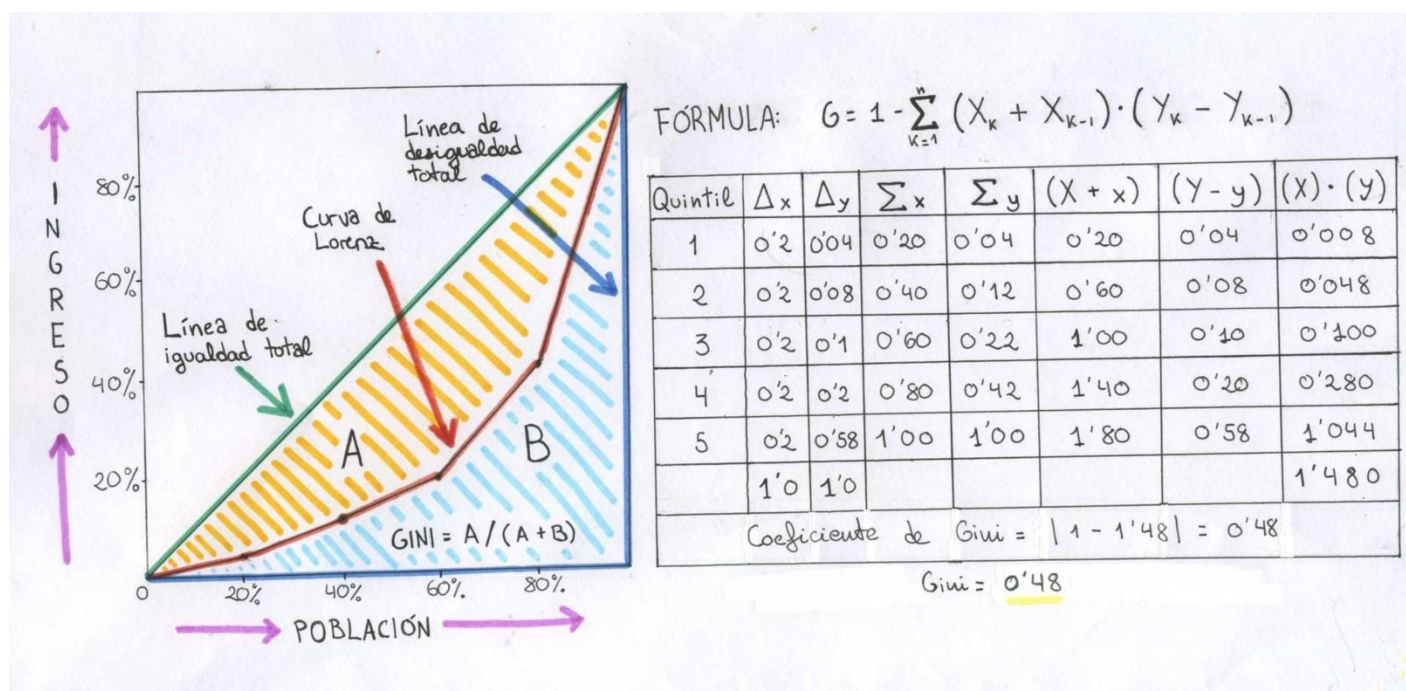 INGRESO
80%
60%
40%
20%
Línea de
desigualdad
total
Curva de
Lorenz
Línea de
igualdad total
A
B
GINI = A / (A + B)
0
20%
40%
60%
80%
POBLACIÓN
FÓRMULA: G = 1 - n∑k=1 (Xk + Xk-1) · (Yk - Yk-1)
Quintil Δx Δy Σx Σy (X + x) (Y - y) (X) · (y)
1 0'2 0'04 0'20 0'04 0'20 0'04 0'008
2 0'2 0'08 0'40 0'12 0'60 0'08 0'048
3 0'2 0'1 0'60 0'22 1'00 0'10 0'100
4 0'2 0'2 0'80 0'42 1'40 0'20 0'280
5 0'2 0'58 1'00 1'00 1'80 0'58 1'044
1'0 1'0 1'480
Coeficiente de Gini = | 1 - 1'48 | = 0'48
Gini = 0'48